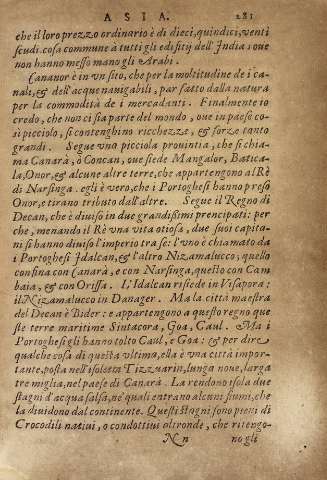 ASIA. 281
che il loro prezzo ordinario è di dieci, quindici, venti
scudi. cosa commune à tutti gli edifitij dell'India: oue
non hanno messo mano gli Arabi.
Cananor è in vn sito, che per la moltitudine de i ca-
nali, & dell'acque nauigabili, par fatto dalla natura
per la commodità de i mercadanti. Finalmente io
credo, che non ci sia parte del mondo, oue in paese co-
si picciolo, si contenghino ricchezze, & forze tanto
grandi. Segue vna picciola prouintia, che si chia-
ma Canarà, ò Concan, oue siede Mangalor, Batica-
la, Onor, & alcune altre terre, che appartengono al Rè
di Narsinga. egli è vero, che i Portoghesi hanno preso
Onor, e tirano tributo dall'altre. Segue il Regno di
Decan, che è diuiso in due grandissimi prencipati: per
che, menando il Rè vna vita otiosa, due suoi capita-
ni si hanno diuiso l'imperio tra se: l'vno è chiamato da
i Portoghesi Idalcan, & l'altro Nizamalucco, quello
confina con Canarà, e con Narsinga, questo con Cam
baia, & con Orissa. L'Idalcan risiede in Visapora:
il Nizamalucco in Danager. Ma la città maestra
del Decan è Bider: e appartengono a questo regno que
ste terre maritime Sintacora, Goa, Caul. Ma i
Portoghesi gli hanno tolto Caul, e Goa: & per dire
qualche cosa di questa vltima, ella è vna città impor-
tante, posta nell'isoletta Tizzuarin, lunga noue, larga
tre miglia, nel paese di Canarà. La rendono isola due
stagni d'acqua salsa, ne' quali entrano alcuni fiumi, che
la diuidono dal continente. Questi stagni sono pieni di
Crocodili natiui, o condottiui oltronde, che ritengo-
Nn no gli